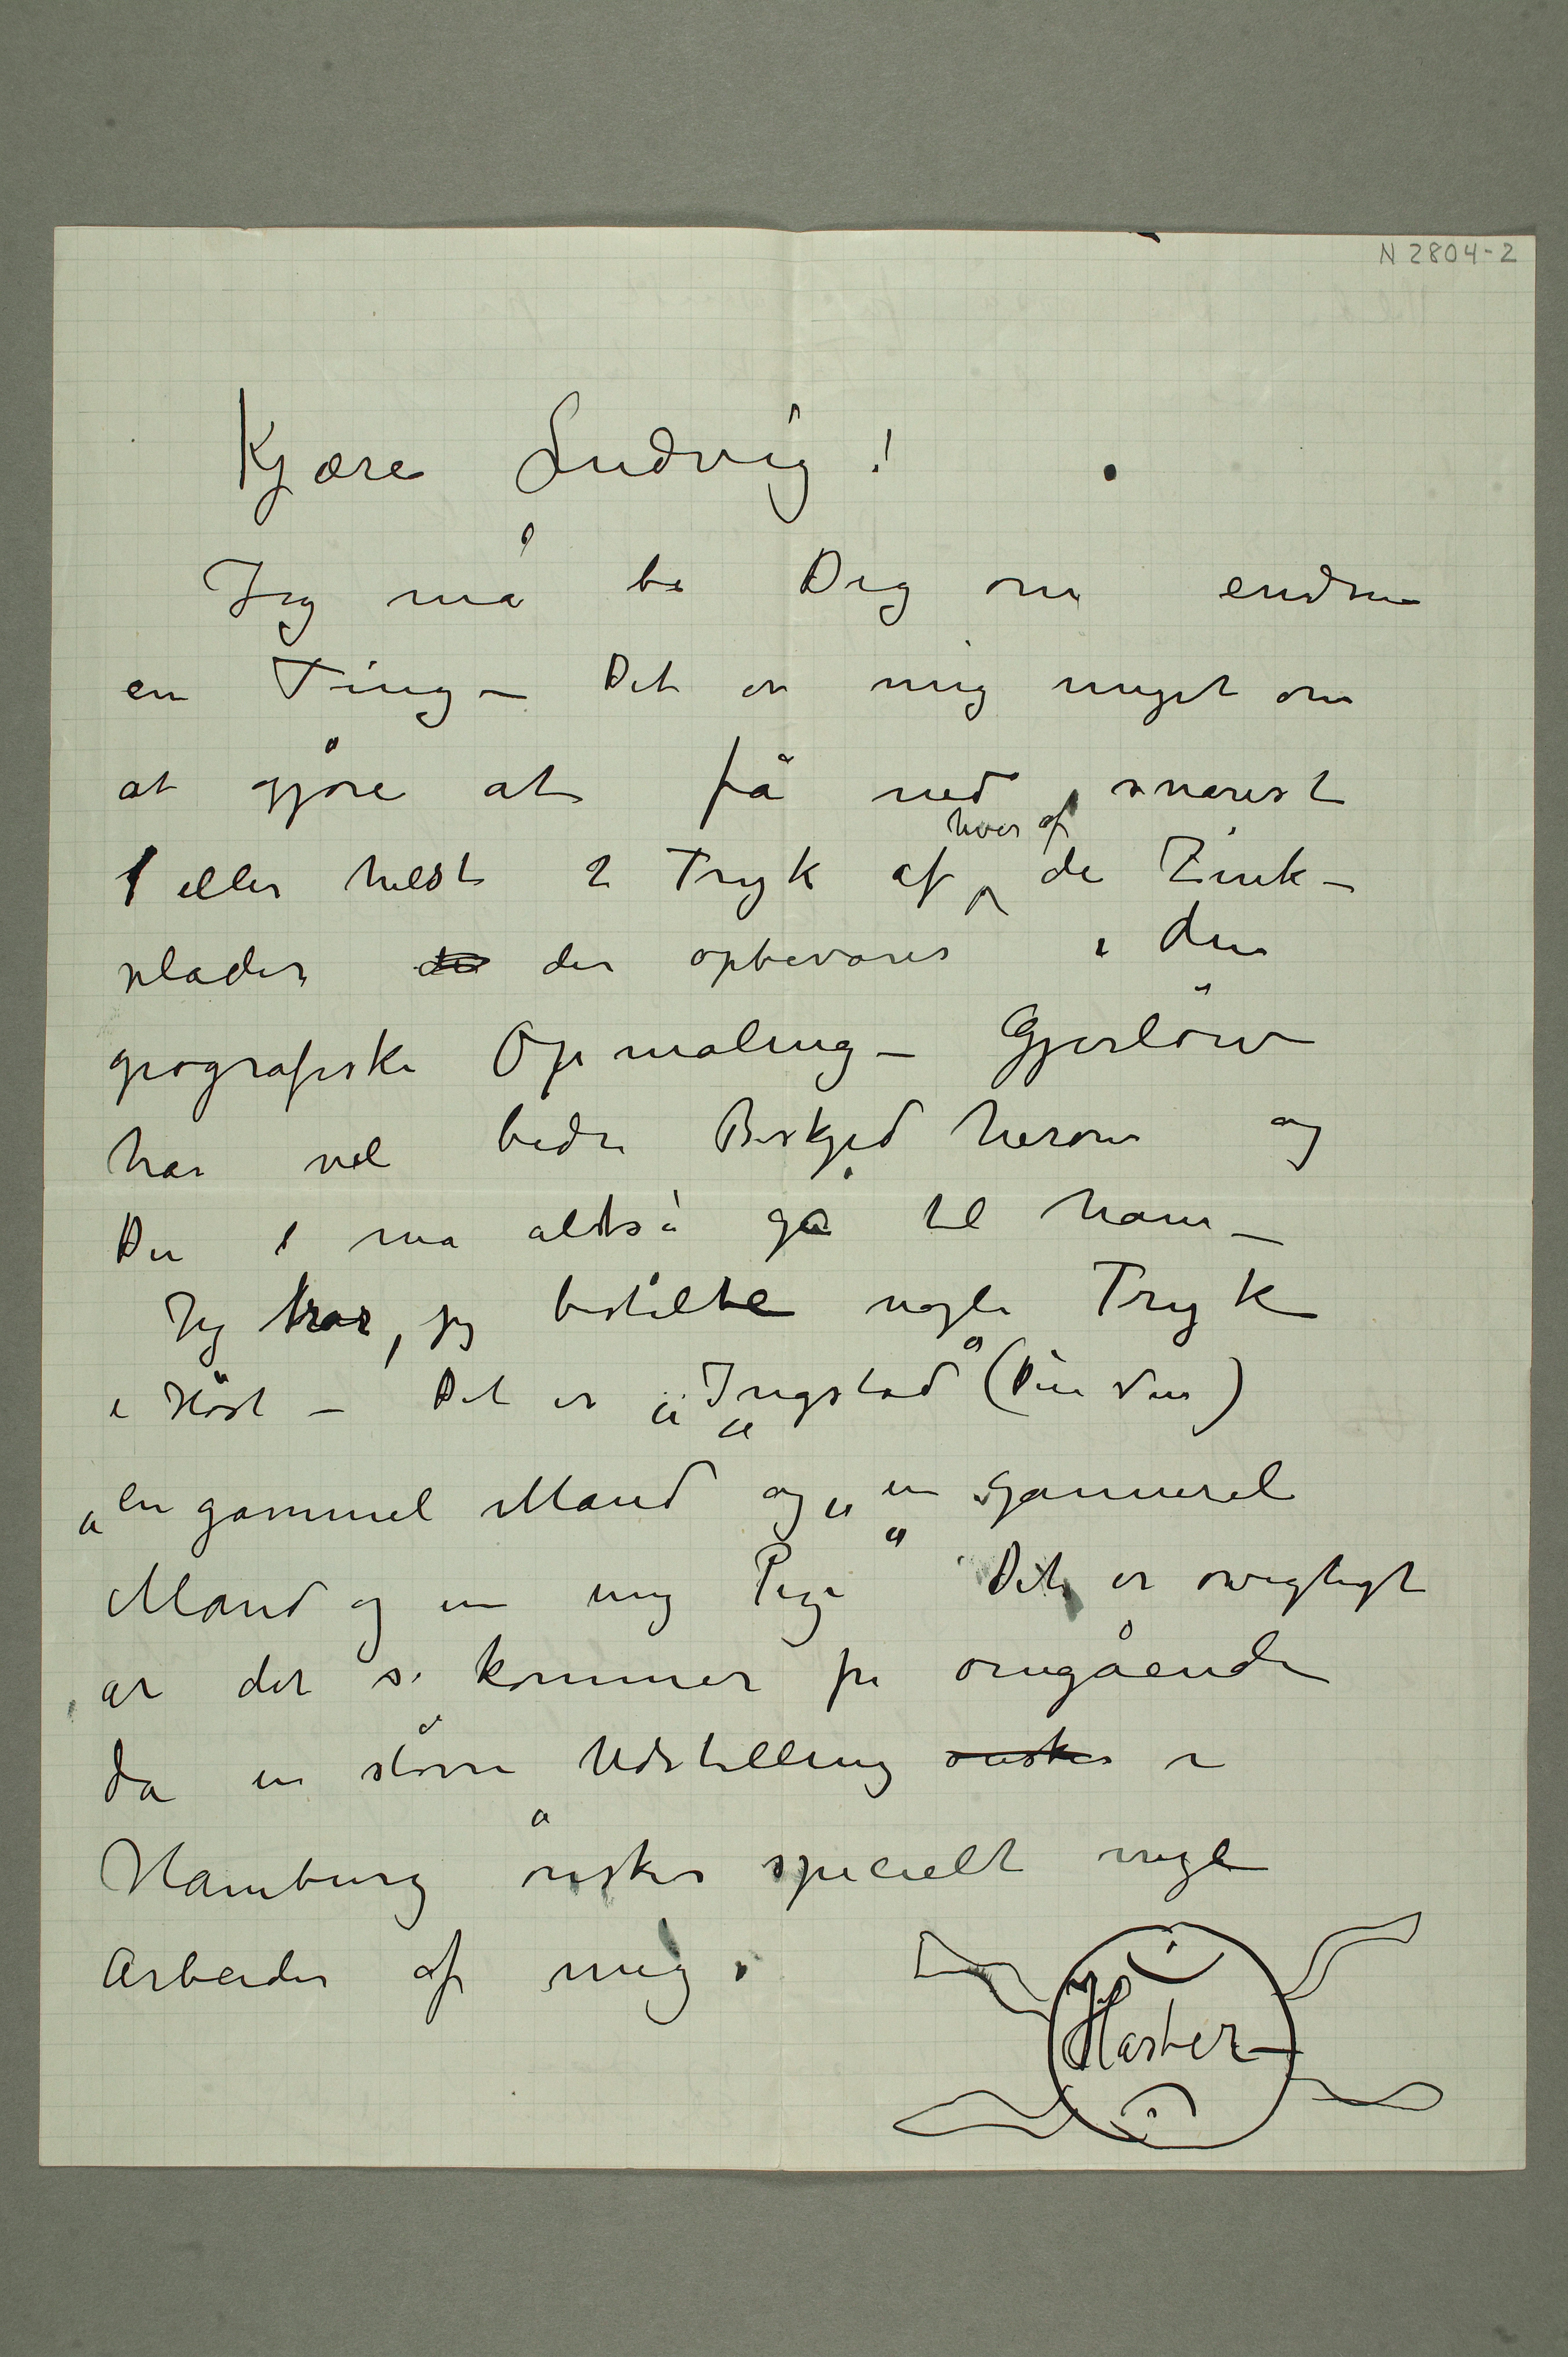 N 2804-2
Kjære Ludvig!
Jeg må be Dig om endnu
en Ting – Det er mig meget om
at gjøre at få ned snarest
1 eller helst 2 Tryk af hver af de Zink-
plader de der opbevares i den
geografiske Opmaling – Gjerløw
har vel bedre Beskjed herom og
Du må altså gå til ham –
Jeg tror, jeg bestilte nogle Tryk
i Høst – Det er „Ingstad“ (Din Ven)
„en gammel Mand og „en gammel
Mand og en ung Pige“ Det er
at det kommer pr omgående
da en større Udstilling ønskes i
Hamburg ønskes specielt nogle
Arbeider af mig.
Haster –